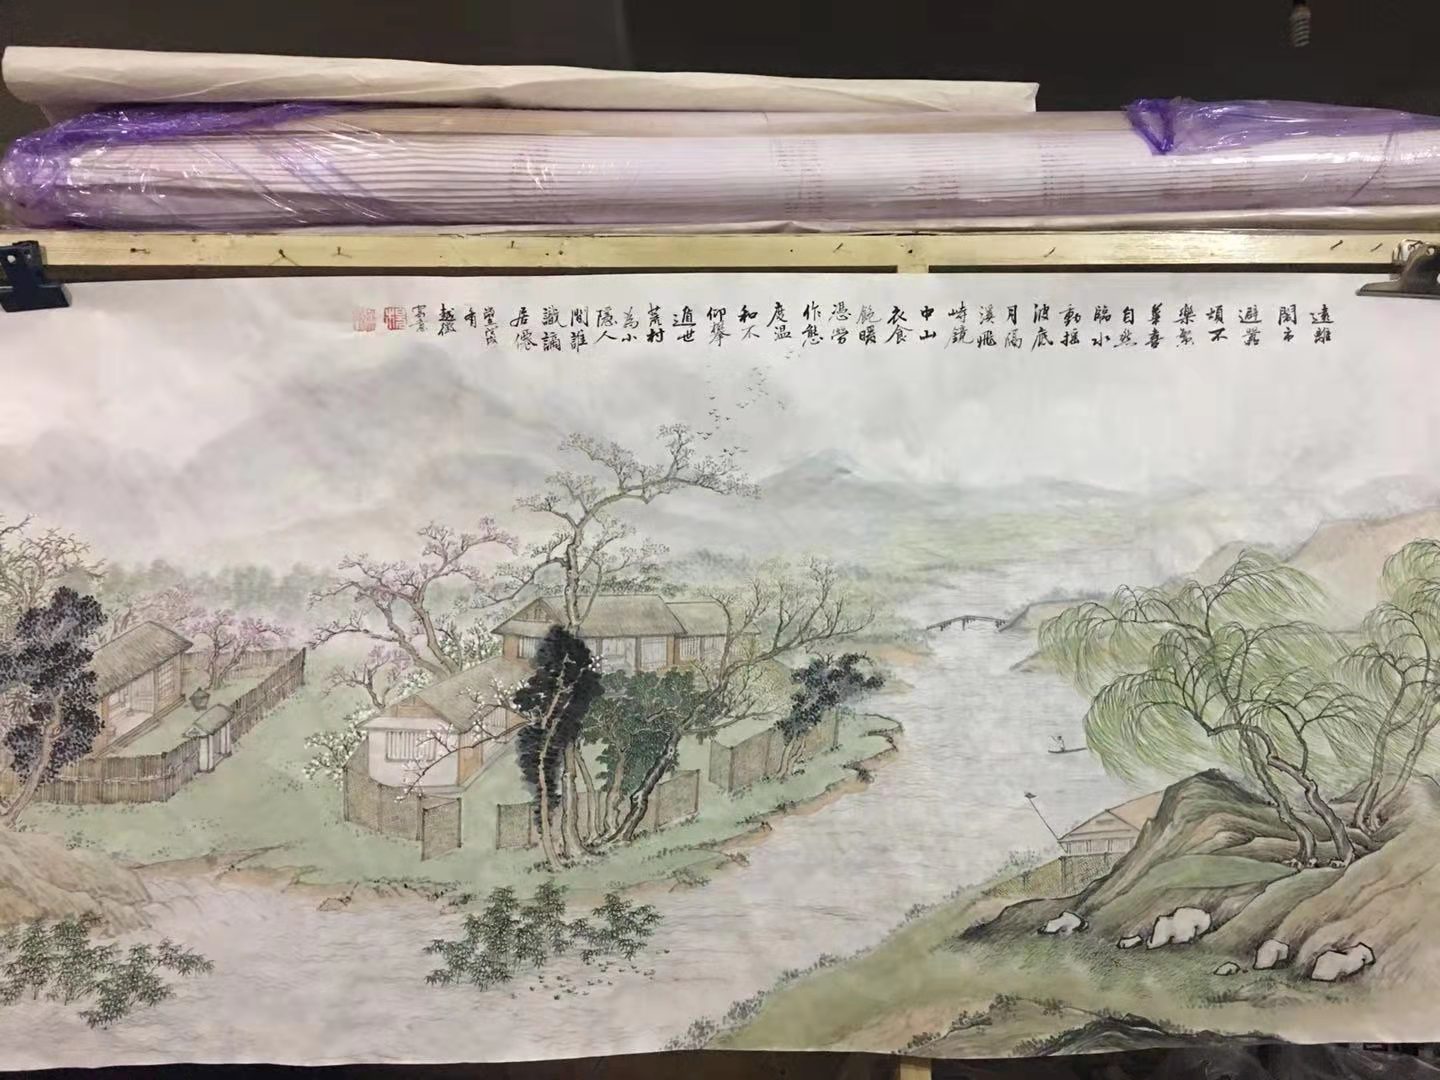 遠離
鬧市
避囂
煩不
樂繁
華喜
自然
臨水
動搖
波底
月隔
溪飛
峙鏡
中山
衣食
飽暖
憑勞
作態
度温
和不
仰攀
遁世
荒村
為小
隱人
間誰
識謫
居僊